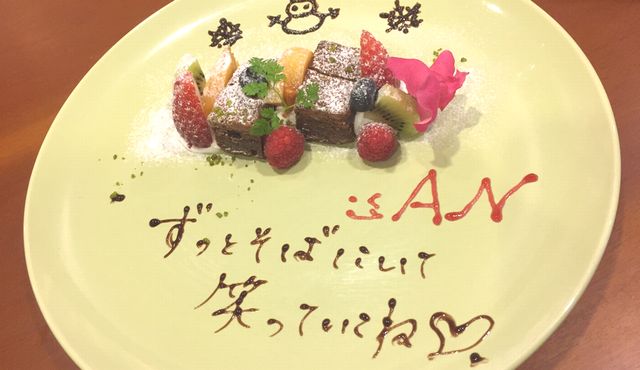 AN
ずっとそばにいて
笑っていてね♡